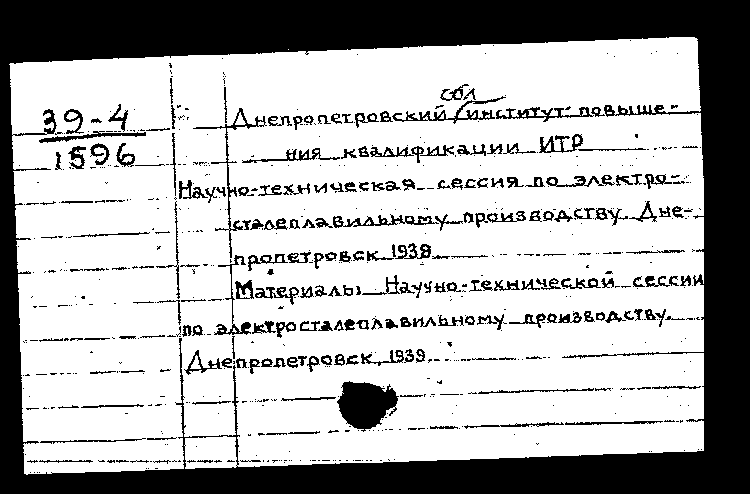 39-4
1596
обл
Днепропетровский институт повыше-
ния квалификации ИТР
Научно-техническая сессия по электро-
сталеплавильному производству. Дне-
пропетровск 1939
Материалы Научно-технической сессии
по электросталеплавильному производству.
Днепропетровск, 1939